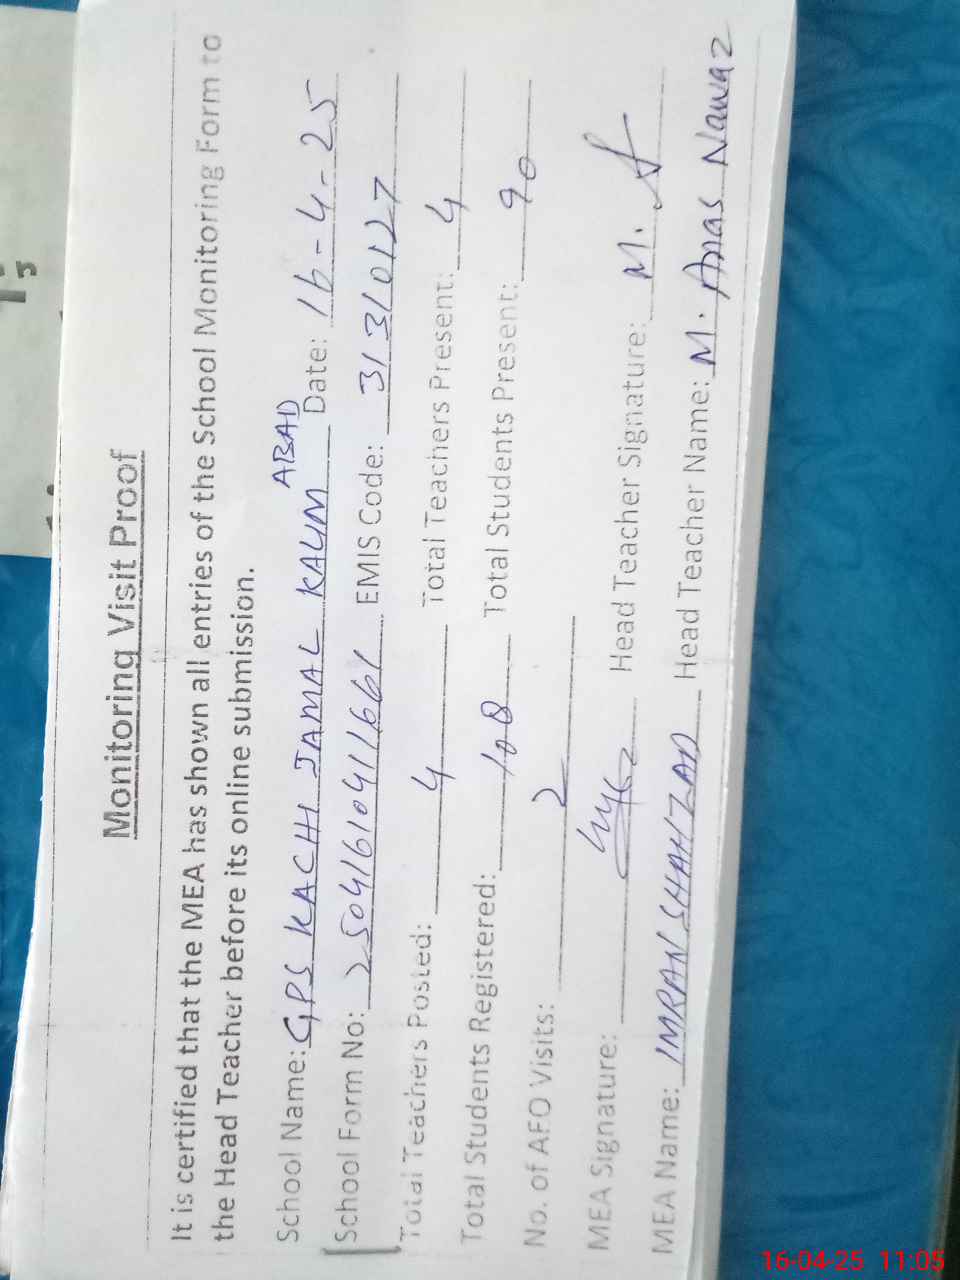 Monitoring Visit Proof
It is certified that the MEA has shown all entries of the School Monitoring Form to
the Head Teacher before its online submission.
School Name: GPS KACHI JAMAL KAUM ABAD Date: 16-4-25
School Form No: EMIS Code: 31310127
Total Teachers Posted: 4 Total Teachers Present: 4
Total Students Registered: 108 Total Students Present: 90
No. of AEO Visits: 2
MEA Signature: Head Teacher Signature: M.
MEA Name: IMRAN SHAHZAD Head Teacher Name: M. Anas Nawaz
16-04-25 11:05